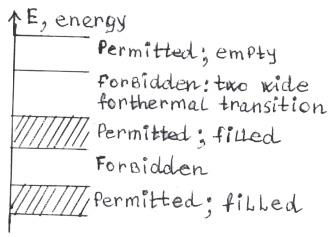 E, energy
Permitted; empty
Forbidden: two wide
forthermal transition
Permitted; filled
Forbidden
Permitted; filled